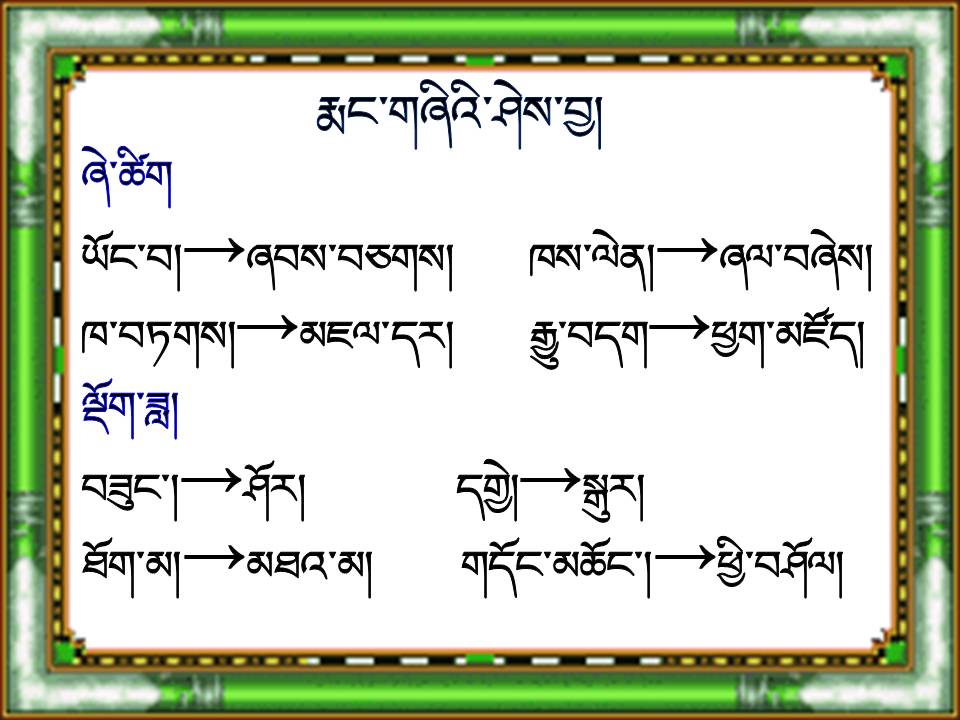 རྨང་གཞིའི་ཤེས་བྱ།
ཞེ་ཚིག
ཡོང་བ།→ཞབས་བཅགས། ཁས་ལེན།→ཞལ་བཞེས།
ཁ་བཏགས།→མཇལ་དར། རྒྱུ་བདག→ཕྱག་མཛོད།
ལྡོག་ཟླ།
བཟུང་།→ཤོར། དགྱེ།→སྒུར།
ཐོག་མ།→མཐའ་མ། གདོང་མཆོང་།→ཕྱི་བཤོལ།